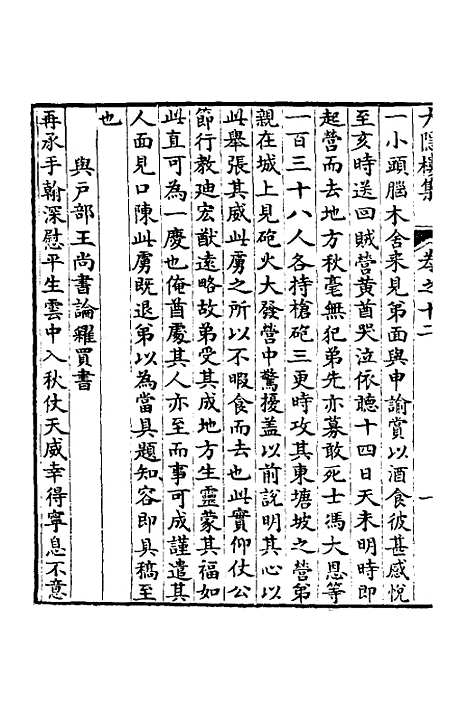 大隱樓集
卷之十二
一
一小頭腦木舍來見弟面與申諭賞以酒食彼甚感悅
至亥時送回賊營黃酋哭泣依聽十四日天未明時即
起營而去地方秋毫無犯弟先亦募敢死士馮大恩等
一百三十八人各持槍砲三更時攻其東塘坡之營弟
親在城上見砲火大發營中驚擾蓋以前說明其心以
此舉張其威此虜之所以不暇食而去也此實仰仗公
節行教廸宏猷遠略故弟受其成地方生靈蒙其福如
此直可為一慶也俺酋處其人亦至而事可成謹遣其
人面見口陳此虜既退弟以為當具題知容即具稿至
也
與戸部王尚書論糴買書
再承手翰深慰平生雲中入秋仗天威幸得寧息不意